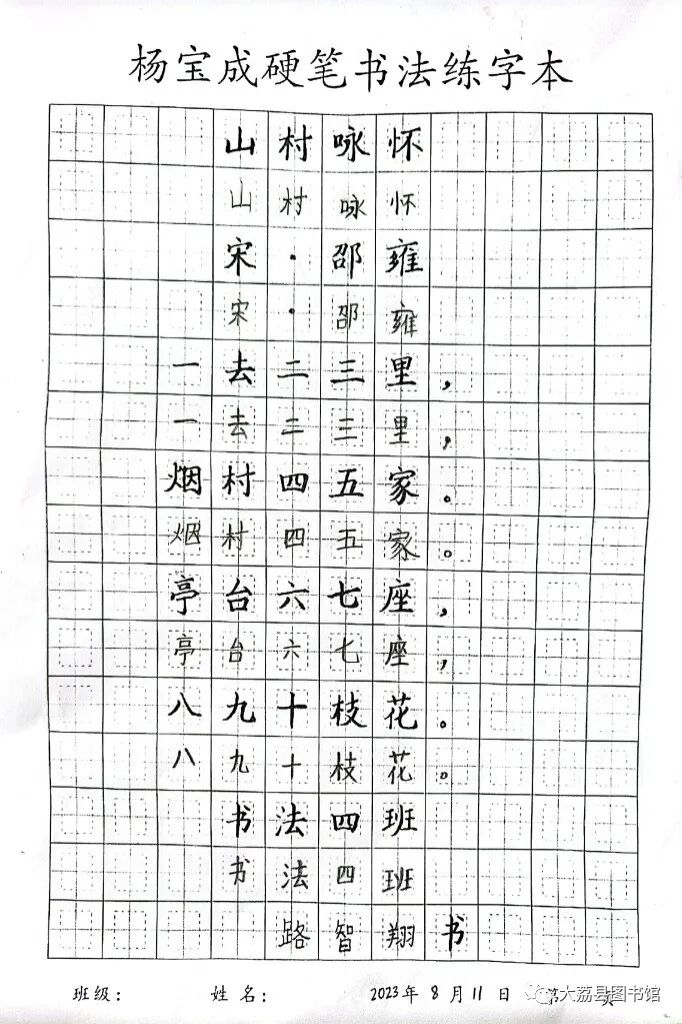 杨宝成硬笔书法练字本
山村咏怀
山村咏怀
宋·邵雍
宋·邵雍
一去二三里，
一去二三里，
烟村四五家。
烟村四五家。
亭台六七座，
亭台六七座，
八九十枝花。
八九十枝花。
书法四班
书法四班
路智翔书
班级： 姓名： 2023年8月11日 第 页
大荔县图书馆